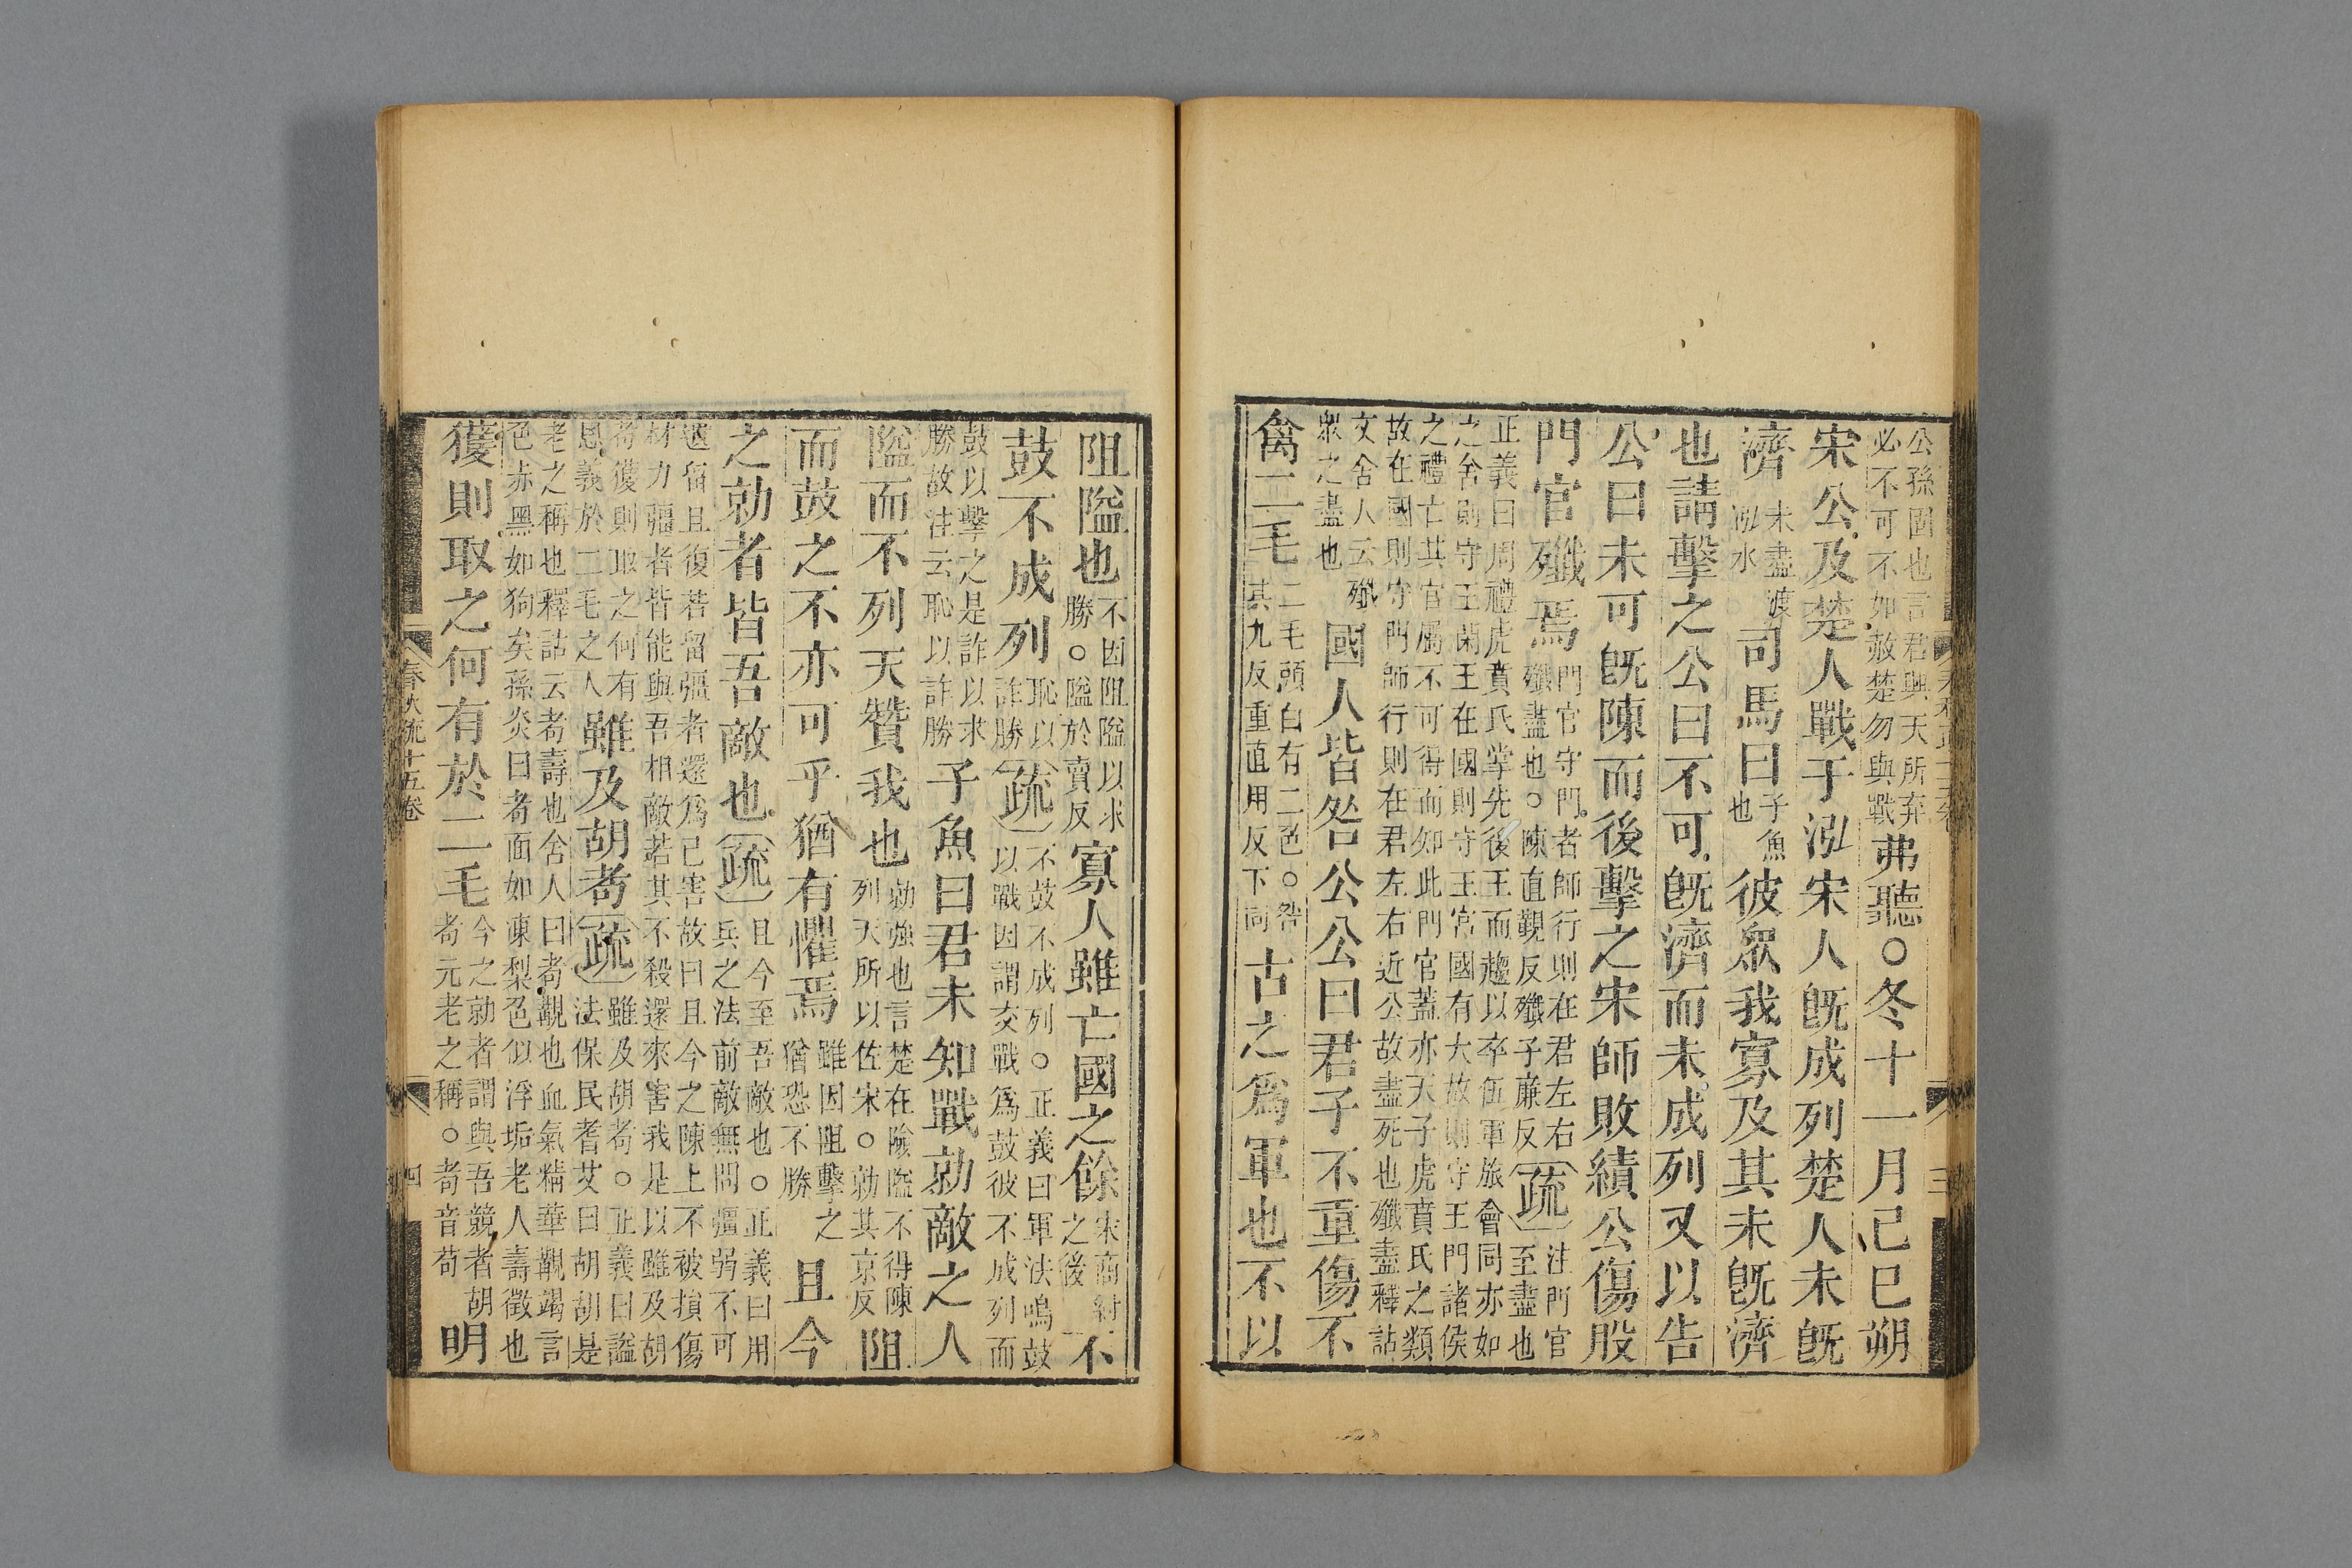 公孫固也言君興天所弃
必不可不如赦楚勿與戰弗聽○冬十一月己巳朔
宋公及楚人戰于泓宋人旣成列楚人未旣
濟未盡渡泓水司馬曰子魚也彼衆我寡及其未旣濟
也請擊之公曰不可旣濟而未成列又以告
公曰未可旣陳而後擊之宋師敗績公傷股
門官殲焉門官守門者師行則在君左右
殲盡也○陳直覲反殲子廉反疏注門官至盡也
正義曰周禮虎賁氏掌先後王而趨以卒伍軍旅會同亦如
之舍則守王閑王在國則守王宮國有大故則守王門諸侯
之禮亡其官屬不可得而知此門官蓋亦天子虎賁氏之類
故在國則守門師行則在君左右近公故盡死也殲盡釋詁
文舍人云殲
衆之盡也國人皆咎公公曰君子不重傷不
禽二毛二毛頭白有二色○咎
其九反重直用反下同古之爲軍也不以
阻隘也不因阻隘以求
勝○隘於賣反寡人雖亡國之餘宋商紂之後不
鼓不成列恥以詐勝疏不鼓不成列○正義曰軍法鳴鼓
以戰因謂交戰爲鼓彼不成列而
鼓以擊之是詐以求
勝故注云恥以詐勝子魚曰君未知戰勍敵之人
隘而不列天贊我也勍強也言楚在險隘不得陳
列天所以佐宋○勍其京反阻
而鼓之不亦可乎猶有懼焉雖因阻擊之
猶恐不勝且今
之勍者皆吾敵也疏且今至吾敵也○正義曰用
兵之法前敵無問彊弱不可
遺留且復若留彊者還爲己害故曰且今之陳上不被損傷
材力彊者皆能與吾相敵若其不殺還來害我是以雖及胡
耇獲則取之何有
恩義於二毛之人雖及胡耇疏雖及胡耇○正義曰謚
法保民耆艾曰胡胡是
老之稱也釋詁云耇壽也舍人曰耇覯也血氣精華覯竭言
色赤黑如狗矣孫炎曰耇面如凍梨色似浮垢老人壽徵也
獲則取之何有於二毛今之勍者謂與吾競者胡
耇元老之稱○耇音苟明
春秋疏十五卷 四